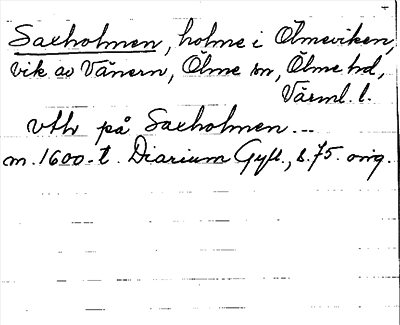 Saxholmen, holme i Ölmeviken,
vik av Vänern, Ölme sn, Ölme hd,
Värml. l.
vthr på Saxholmen ...
m. 1600-t. Diarium Gyll., s. 75. orig.